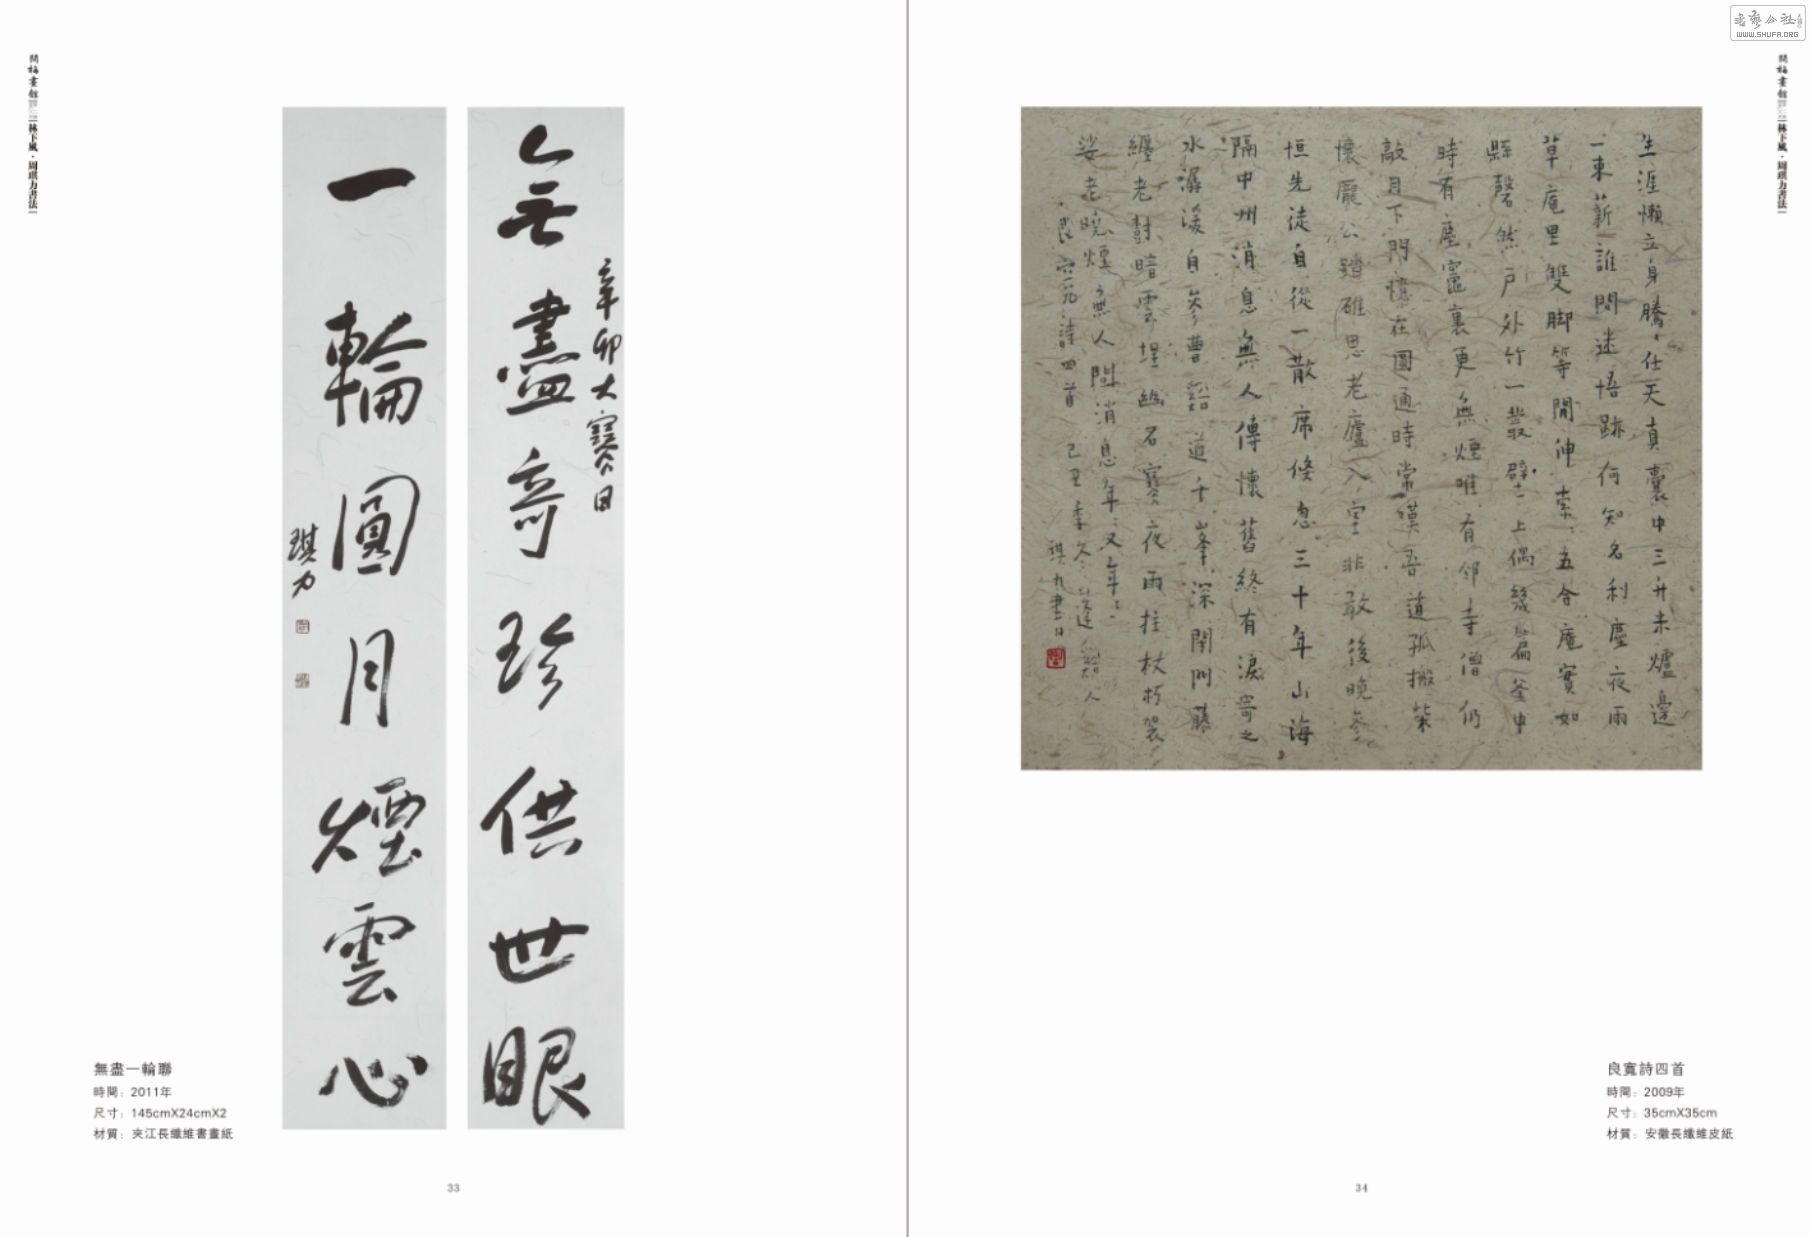 閒梅畫館
林下風·周琪力書法
無盡奇珍供世眼
辛卯大寒日
一輪圓月煙雲心
琪力
無盡一輪聯
時間：2011年
尺寸：145cmX24cmX2
材質：夾江長纖維書畫紙
33
WWW.SHUFA.ORG
閒梅畫館
林下風·周琪力書法
生涯懶立身騰〻任天真囊中三升米爐邊
一束薪誰問迷悟跡何知名利塵夜雨
草庵里雙脚等閒伸索〻五合庵實如
縣磬然戶外竹一叢壁上偈幾篇釜中
時有塵竈裏更無煙唯有邻寺僧仍
敲月下門憶在圓通時常嘆吾道孤搬柴
懷龐公踏碓思老廬入室非敢後晚參
恒先徒自從一散席倏忽三十年山海
隔中州消息無人傳懷舊終有淚寄之
水潺湲自參曹谿道千峯深閉門藤
纏老樹暗雲埋幽石寒夜雨拄杖朽袈
裟老曉煙無人問消息年〻又年〻
良寬詩四首 己丑季冬 谿人
琪力書
良寬詩四首
時間：2009年
尺寸：35cmX35cm
材質：安徽長纖維皮紙
34